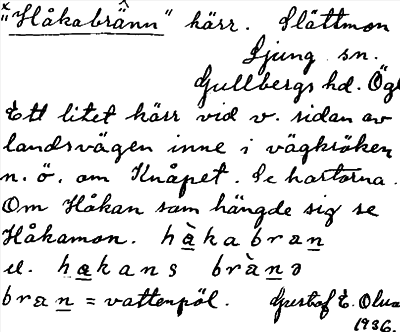 x "Håkabränn" kärr. Slättmon
Ljung sn.
Gullbergs hd. Ögl
Ett litet kärr vid v. sidan av
landsvägen inne i vägkröken
n. ö. om Knåpet. Se kartorna.
Om Håkan som hängde sig se
Håkamon. hàkabran
el. hakans bràna
bran = vattenpöl. Gustaf E. Olss
1936.